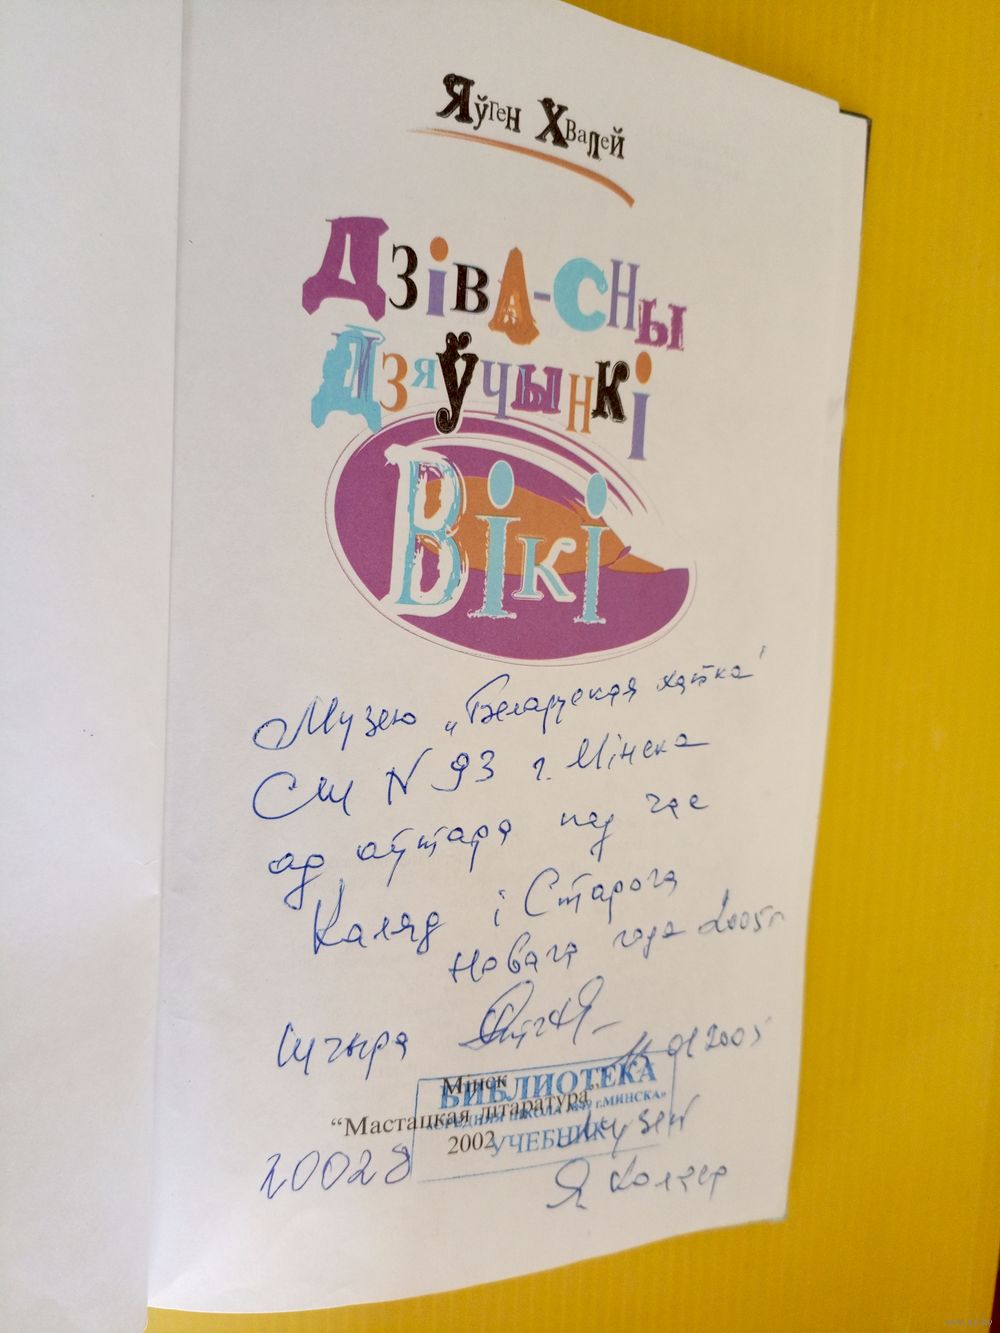 Яўген Хвалей
Дзіва-сны
дзяўчынкі
Вікі
Музею „Беларуская хатка"
СШ N 93 г. Мінска
ад аўтара пад час
Каляд і Старога
Новага года 2005г
Шчыра
01 2005
Мінск
“Мастацкая літаратура”
2002
БИБЛИОТЕКА
СРЕДНЯЯ ШКОЛА г.МИНСКА»
УЧЕБНИК
20028
музей
Я Коласа